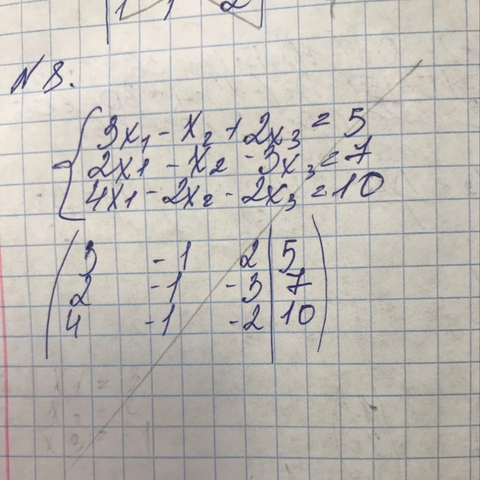 1 1 2
N 8.
3x₁ - x₂ + 2x₃ = 5
2x1 - x₂ - 3x₃ = 7
4x1 - 2x₂ - 2x₃ = 10
3 -1 2 | 5
2 -1 -3 | 7
4 -1 -2 | 10